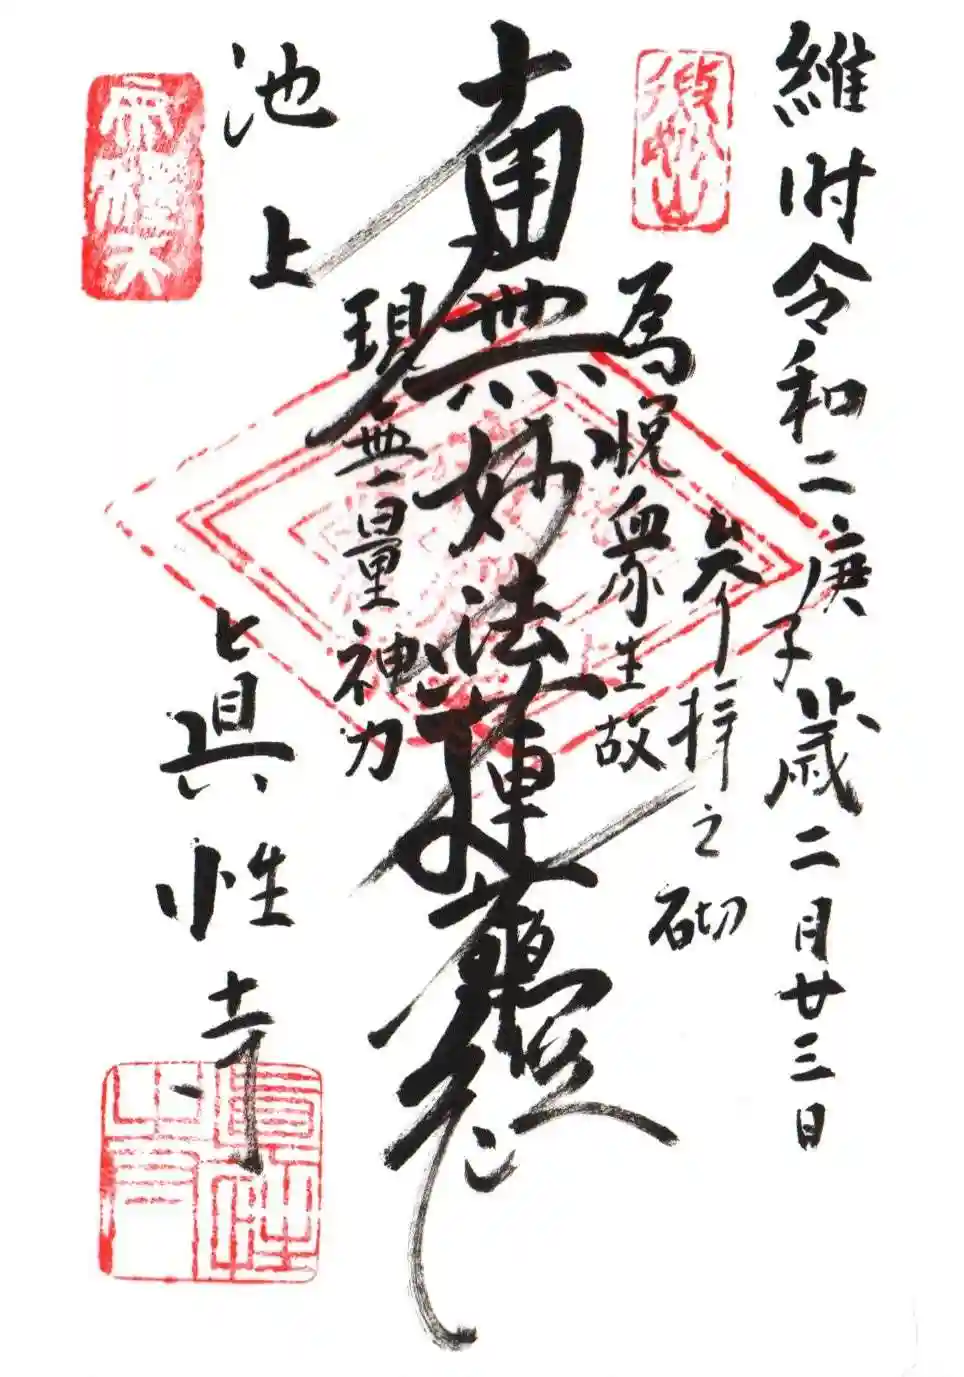 維時令和二庚子歳二月廿三日
参拝之砌
為悦衆生故
南無妙法蓮華経
現無量神力
池上
眞性寺
帝釋天